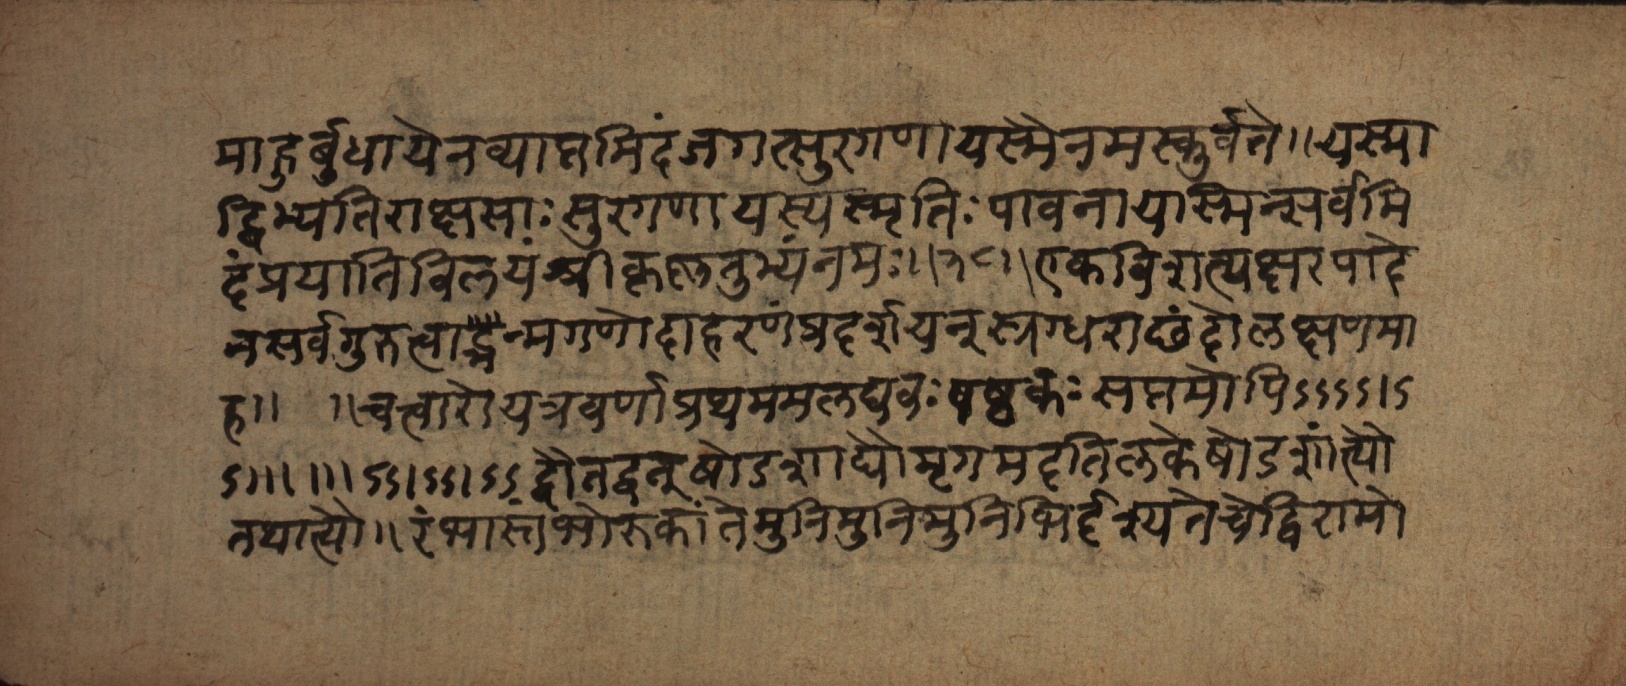 माहुर्बुधायेनव्याप्तमिदंजगत्सुरगणायस्मैनमस्कुर्वते॥यस्मा
द्बिभ्यतिराक्षसाःसुरगणायस्यस्मृतिःपावनायास्मिन्सर्वमि
दंप्रयातिविलयंश्रीकृष्णतुभ्यंनमः॥१८॥एकविंशत्यक्षरपादे
नसर्वगुरुत्वान्मगणोदाहरणंप्रदर्शयन्स्रग्धराछंदोलक्षणमा
ह॥ ॥चत्वारोयत्रवर्णाप्रथममलघवःषष्ठकःसप्तमोपिऽऽऽऽ।ऽ
ऽ।।।।।।ऽऽ।ऽऽ।ऽऽद्वौतद्वत्षोडशाद्यौमृगमदतिलकेषोडशांत्यौ
तथात्यौ॥रंभास्तंभोरुकांतेमुनिमुनिमुनिभिर्दृश्यतेचेद्विरामो